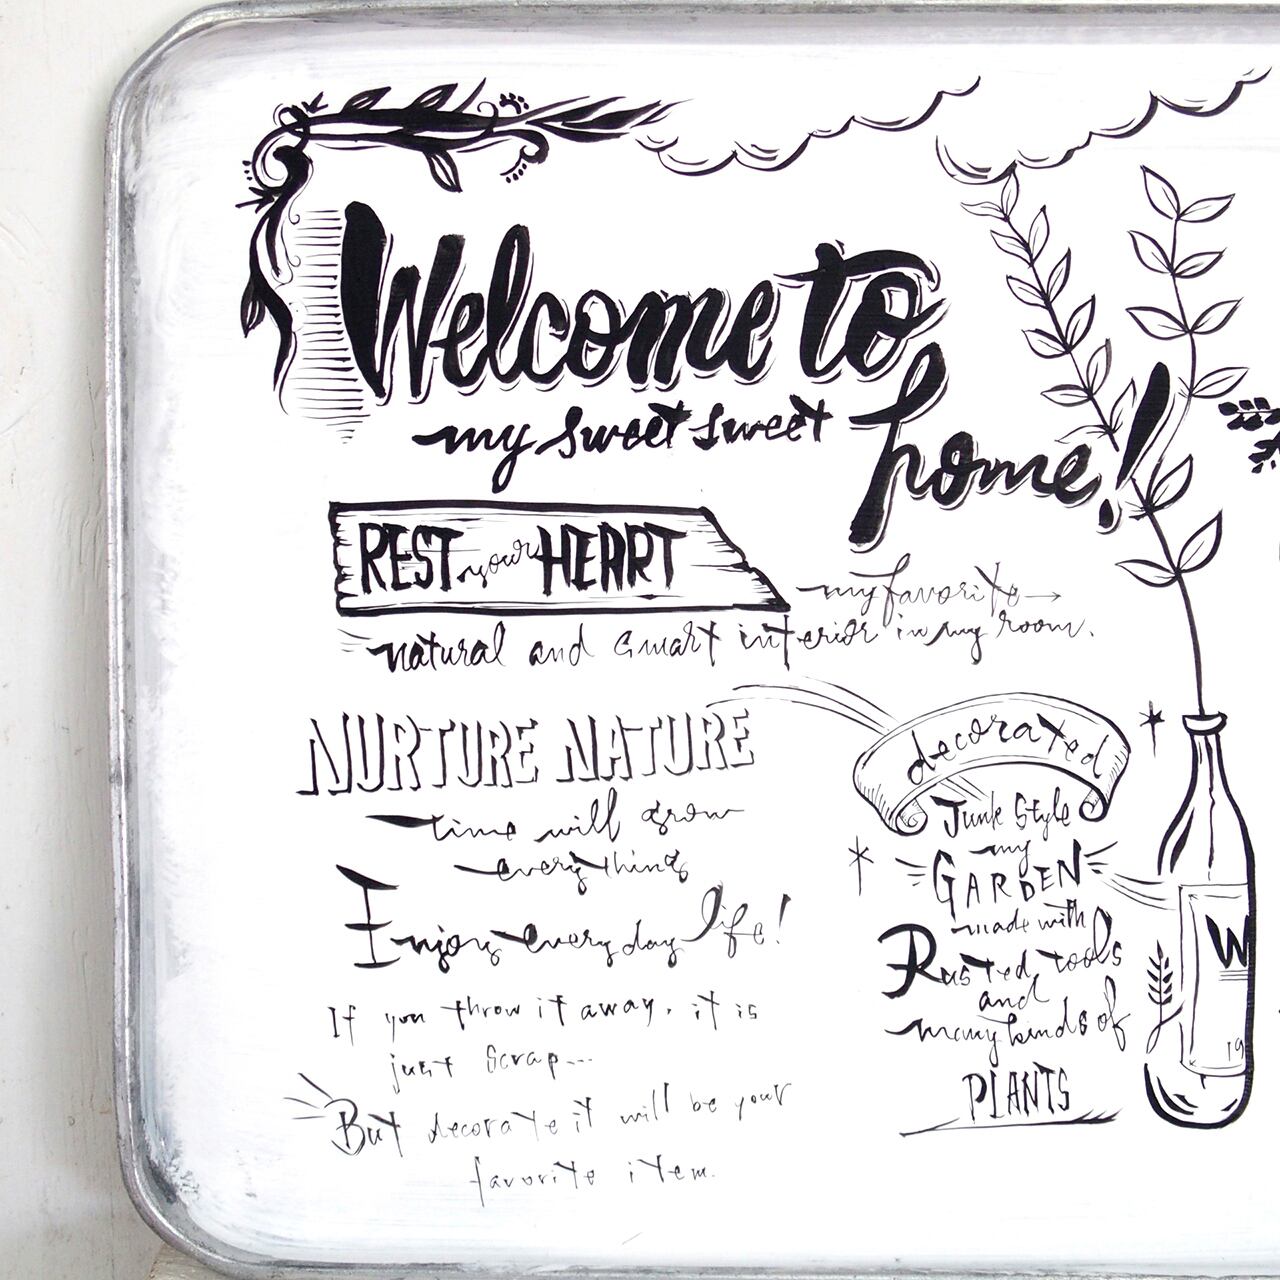 Welcome to
my sweet sweet home!
REST your HEART
my favorite
natural and smart interior in my room.
NURTURE NATURE
time will grow
everything
Enjoy everyday life!
If you throw it away, it is
just scrap...
But decorate it will be your
favorite item.
decorated
Junk Style
my
GARDEN
made with
Rusted tools
and
many kinds of
PLANTS
W
19